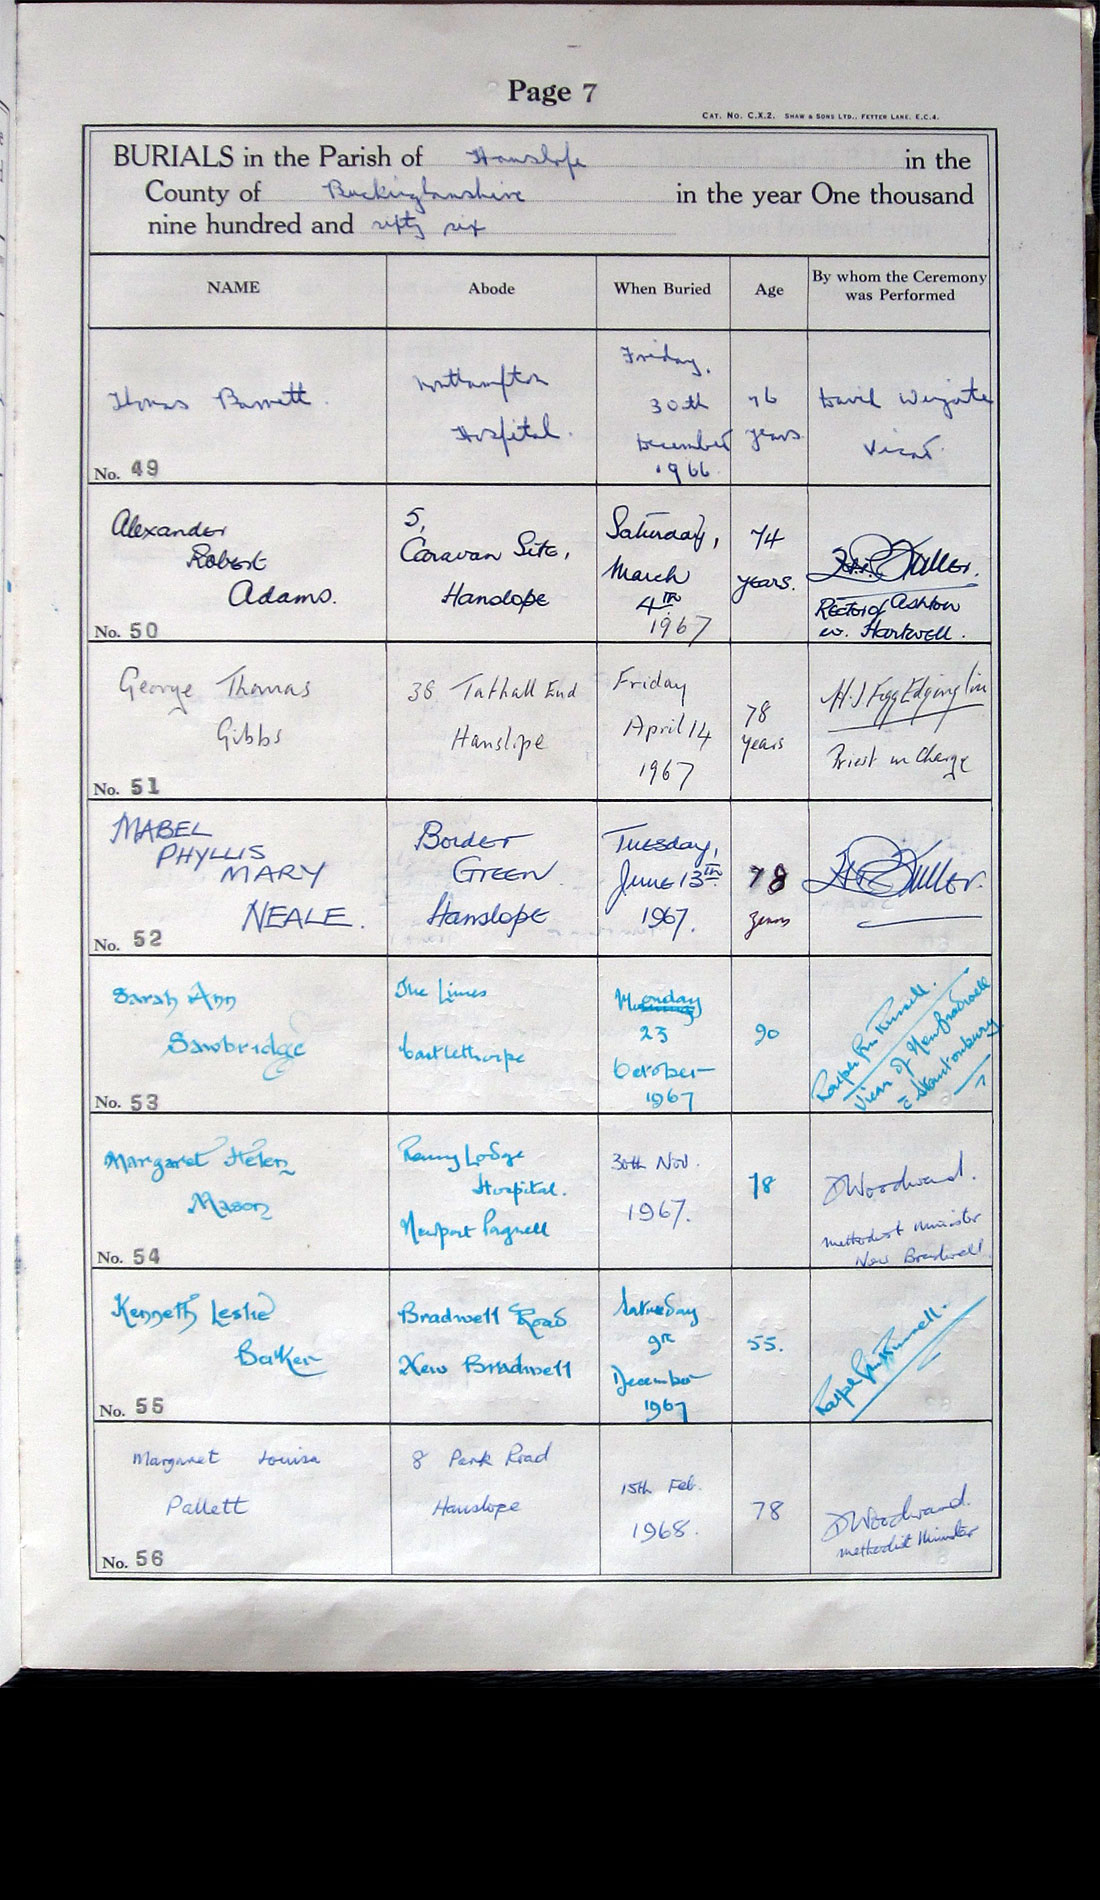 Page 7
CAT. No. C.X.2. SHAW & SONS LTD., FETTER LANE, E.C.4.
BURIALS in the Parish of Hanslope in the
County of Buckinghamshire in the year One thousand
nine hundred and sixty six
NAME Abode When Buried Age By whom the Ceremony was Performed
Thomas Barrett
Northampton
Hospital.
Friday,
30th
December
1966
76
years
David Wingate
Vicar.
No. 49
Alexander
Robert
Adams.
5,
Caravan Site,
Hanslope
Saturday,
March
4TH
1967
74
years.
Fuller.
Rector of Ashton
w. Hartwell.
No. 50
George Thomas
Gibbs
38 Tathall End
Hanslope
Friday
April 14
1967
78
years
H. J Figg Edgington
Priest in Charge
No. 51
MABEL
PHYLLIS
MARY
NEALE.
Border
GREEN
Hanslope
Tuesday,
June 13TH
1967.
78
years
Fuller.
No. 52
Sarah Ann
Sawbridge
The Limes
Castlethorpe
Monday
23
October
1967
90
Ralph Russell.
Vicar of New Bradwell
c Stantonbury
No. 53
Margaret Helen
Mason
Renny Lodge
Hospital.
Newport Pagnell
30th Nov.
1967.
78
D Woodward.
Methodist Minister
New Bradwell.
No. 54
Kenneth Leslie
Baker
Bradwell Road
New Bradwell
Saturday
9th
December
1967
55.
Ralph Russell.
No. 55
Margaret Louisa
Pallett
8 Park Road
Hanslope
15th Feb.
1968.
78
D Woodward.
Methodist Minister
No. 56